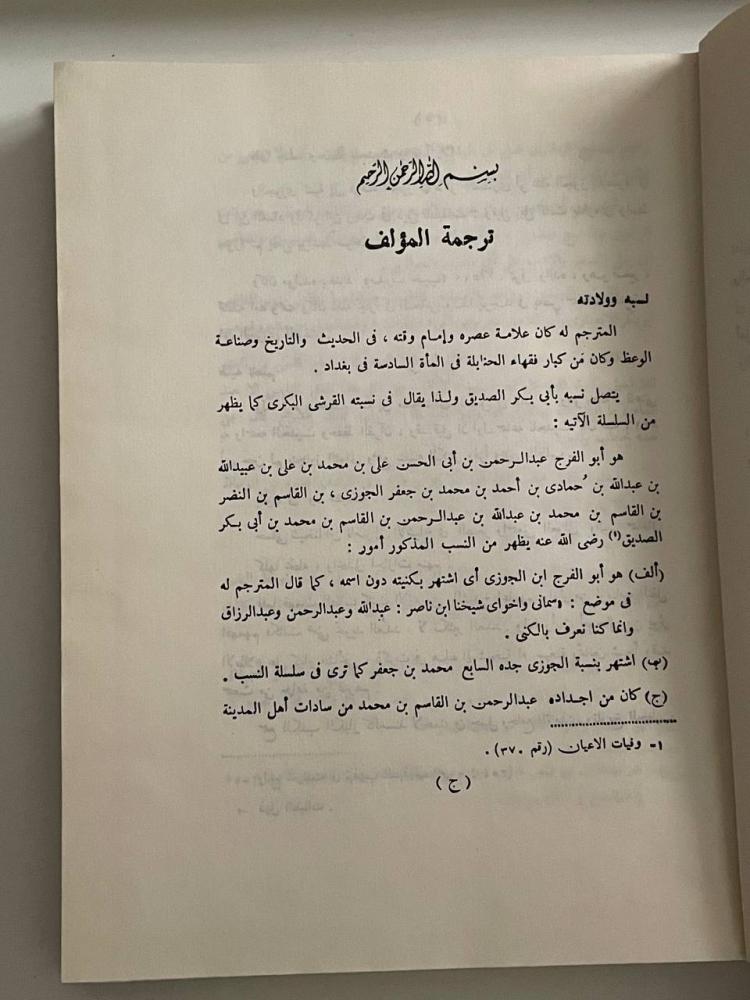 بسم الله الرحمن الرحيم
ترجمة المؤلف
نسبه وولادته
المترجم له كان علامة عصره وإمام وقته ، فى الحديث والتاريخ وصناعة
الوعظ وكان من كبار فقهاء الحنابلة فى المأة السادسة فى بغداد .
يتصل نسبه بأبى بكر الصديق ولذا يقال فى نسبته القرشى البكرى كما يظهر
من السلسلة الآتيه :
هو أبو الفرج عبدالرحمن بن أبى الحسن على بن محمد بن على بن عبيدالله
بن عبدالله بن حُمادى بن أحمد بن محمد بن جعفر الجوزى ، بن القاسم بن النضر
بن القاسم بن محمد بن عبدالله بن عبدالرحمن بن القاسم بن محمد بن أبى بكر
الصديق(١) رضى الله عنه يظهر من النسب المذكور أمور :
(ألف) هو أبو الفرج ابن الجوزى أى اشتهر بكنيته دون اسمه ، كما قال المترجم له
فى موضع : وسمانى واخواى شيخنا ابن ناصر : عبدالله وعبدالرحمن وعبدالرزاق
وانما كنا نعرف بالكنى .
(ب) اشتهر بنسبة الجوزى جده السابع محمد بن جعفر كما ترى فى سلسلة النسب .
(ج) كان من اجداده عبدالرحمن بن القاسم بن محمد من سادات أهل المدينة
١- وفيات الاعيان (رقم ٣٧٠) .
(ج)